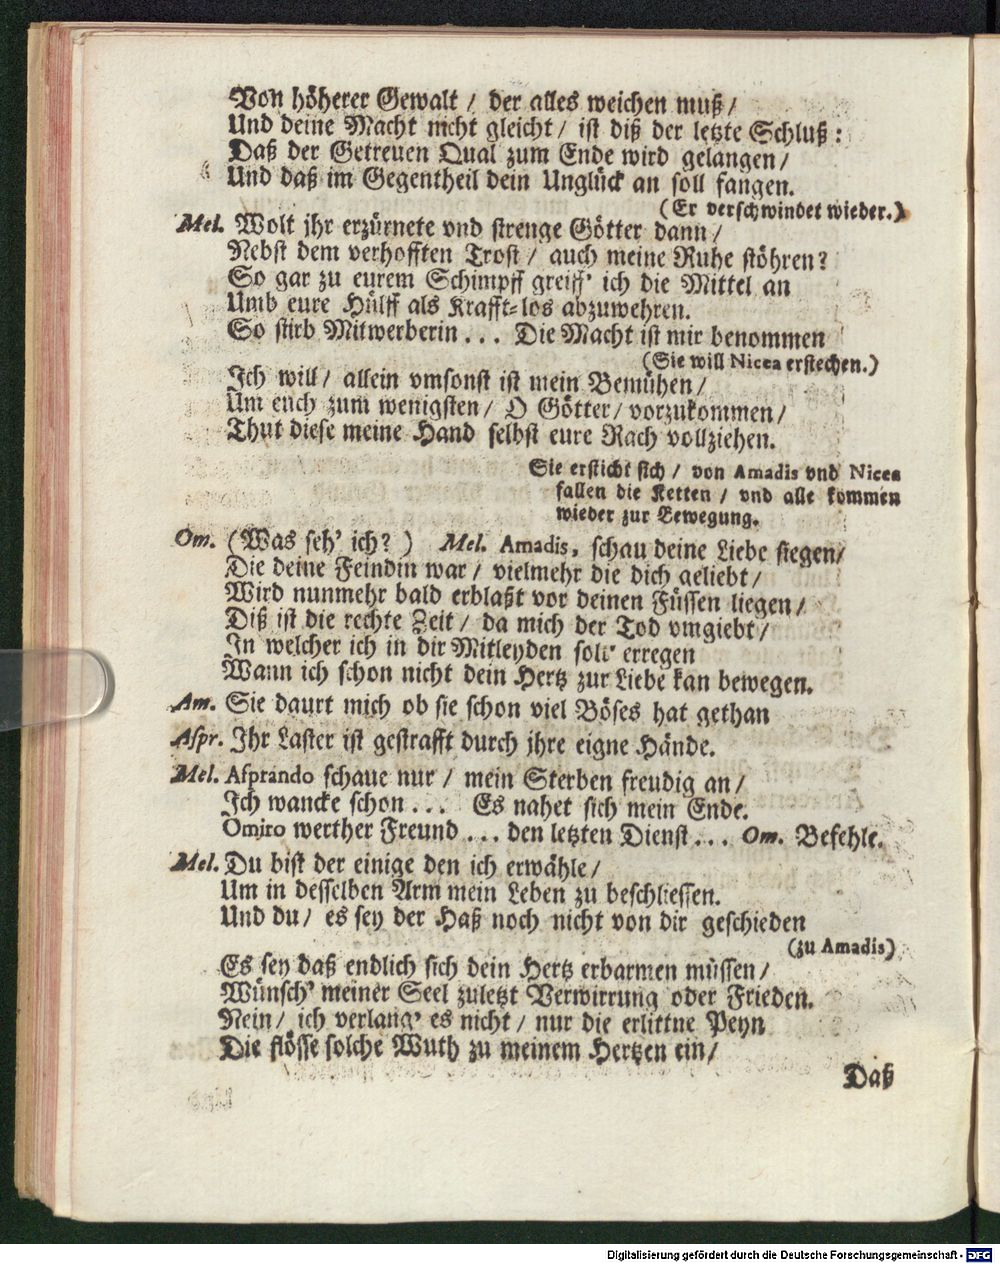 Von höherer Gewalt / der alles weichen muß /
Und deine Macht nicht gleicht / ist diß der letzte Schluß :
Daß der Getreuen Qual zum Ende wird gelangen /
Und daß im Gegentheil dein Unglück an soll fangen.
(Er verschwindet wieder.)
Mel. Wolt jhr erzürnete vnd strenge Götter dann /
Nebst dem verhofften Trost / auch meine Ruhe stöhren?
So gar zu eurem Schimpff greiff' ich die Mittel an
Umb eure Hülff als Krafft-los abzuwehren.
So stirb Mitwerberin ... Die Macht ist mir benommen
(Sie will Nicea erstechen.)
Ich will / allein vmsonst ist mein Bemühen /
Um euch zum wenigsten / O Götter / vorzukommen /
Thut diese meine Hand selbst eure Rach vollziehen.
Sie ersticht sich / von Amadis vnd Nicea
fallen die Ketten / vnd alle kommen
wieder zur Bewegung.
Om. (Was seh' ich? ) Mel. Amadis, schau deine Liebe siegen /
Die deine Feindin war / vielmehr die dich geliebt /
Wird nunmehr bald erblaßt vor deinen Füssen liegen /
Diß ist die rechte Zeit / da mich der Tod vmgiebt /
In welcher ich in dir Mitleyden soll' erregen
Wann ich schon nicht dein Hertz zur Liebe kan bewegen.
Am. Sie daurt mich ob sie schon viel Böses hat gethan
Aspr. Ihr Laster ist gestrafft durch jhre eigne Hände.
Mel. Asprando schaue nur / mein Sterben freudig an /
Ich wancke schon ... Es nahet sich mein Ende.
Omiro werther Freund ... den letzten Dienst ... Om. Befehle.
Mel. Du bist der einige den ich erwähle /
Um in desselben Arm mein Leben zu beschliessen.
Und du / es sey der Haß noch nicht von dir geschieden
(zu Amadis)
Es sey daß endlich sich dein Hertz erbarmen müssen /
Wünsch' meiner Seel zuletzt Verwirrung oder Frieden.
Nein / ich verlang' es nicht / nur die erlittne Peyn
Die flösse solche Wuth zu meinem Hertzen ein /
Daß
Digitalisierung gefördert durch die Deutsche Forschungsgemeinschaft - DFG